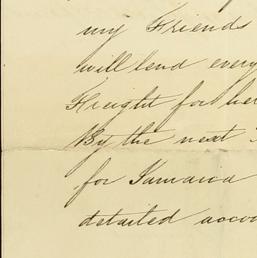 my Friends
will lend every
Freight for her
By the next
for Jamaica
detailed accou